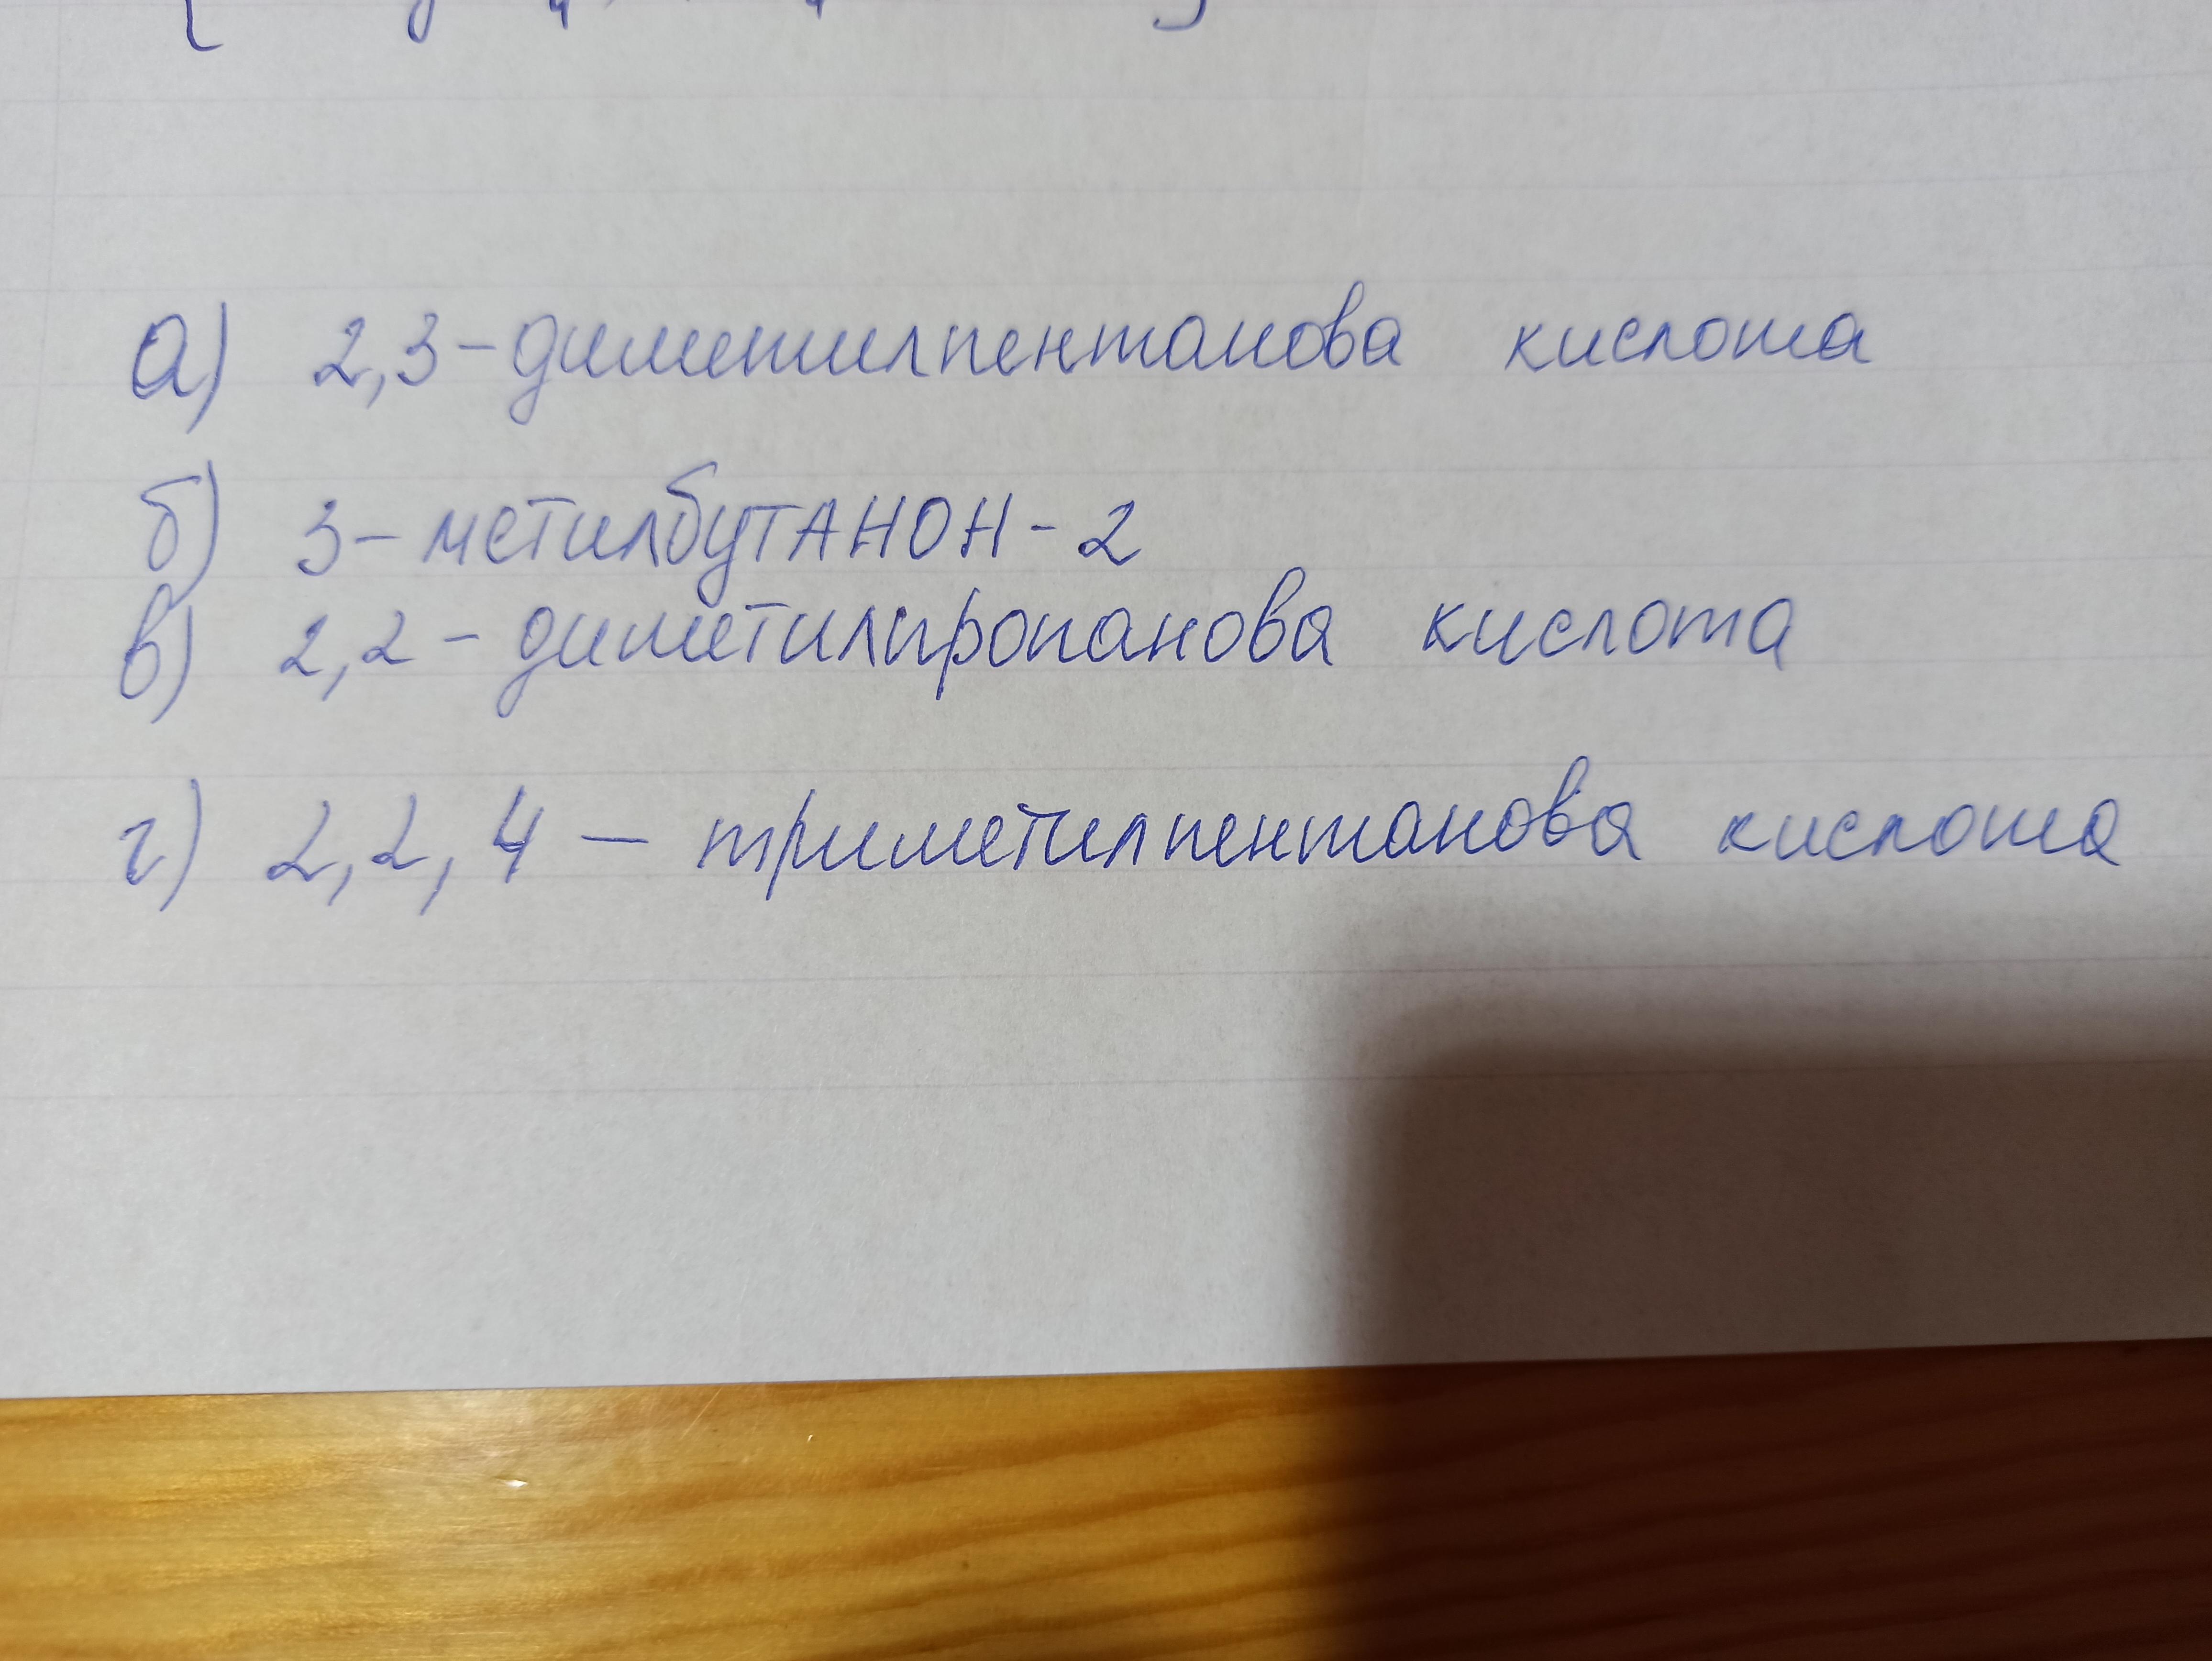 а) 2,3-диметилпентанова кислота
б) 3-метилбутанон-2
в) 2,2-диметилпропанова кислота
г) 2,2,4-триметилпентанова кислота